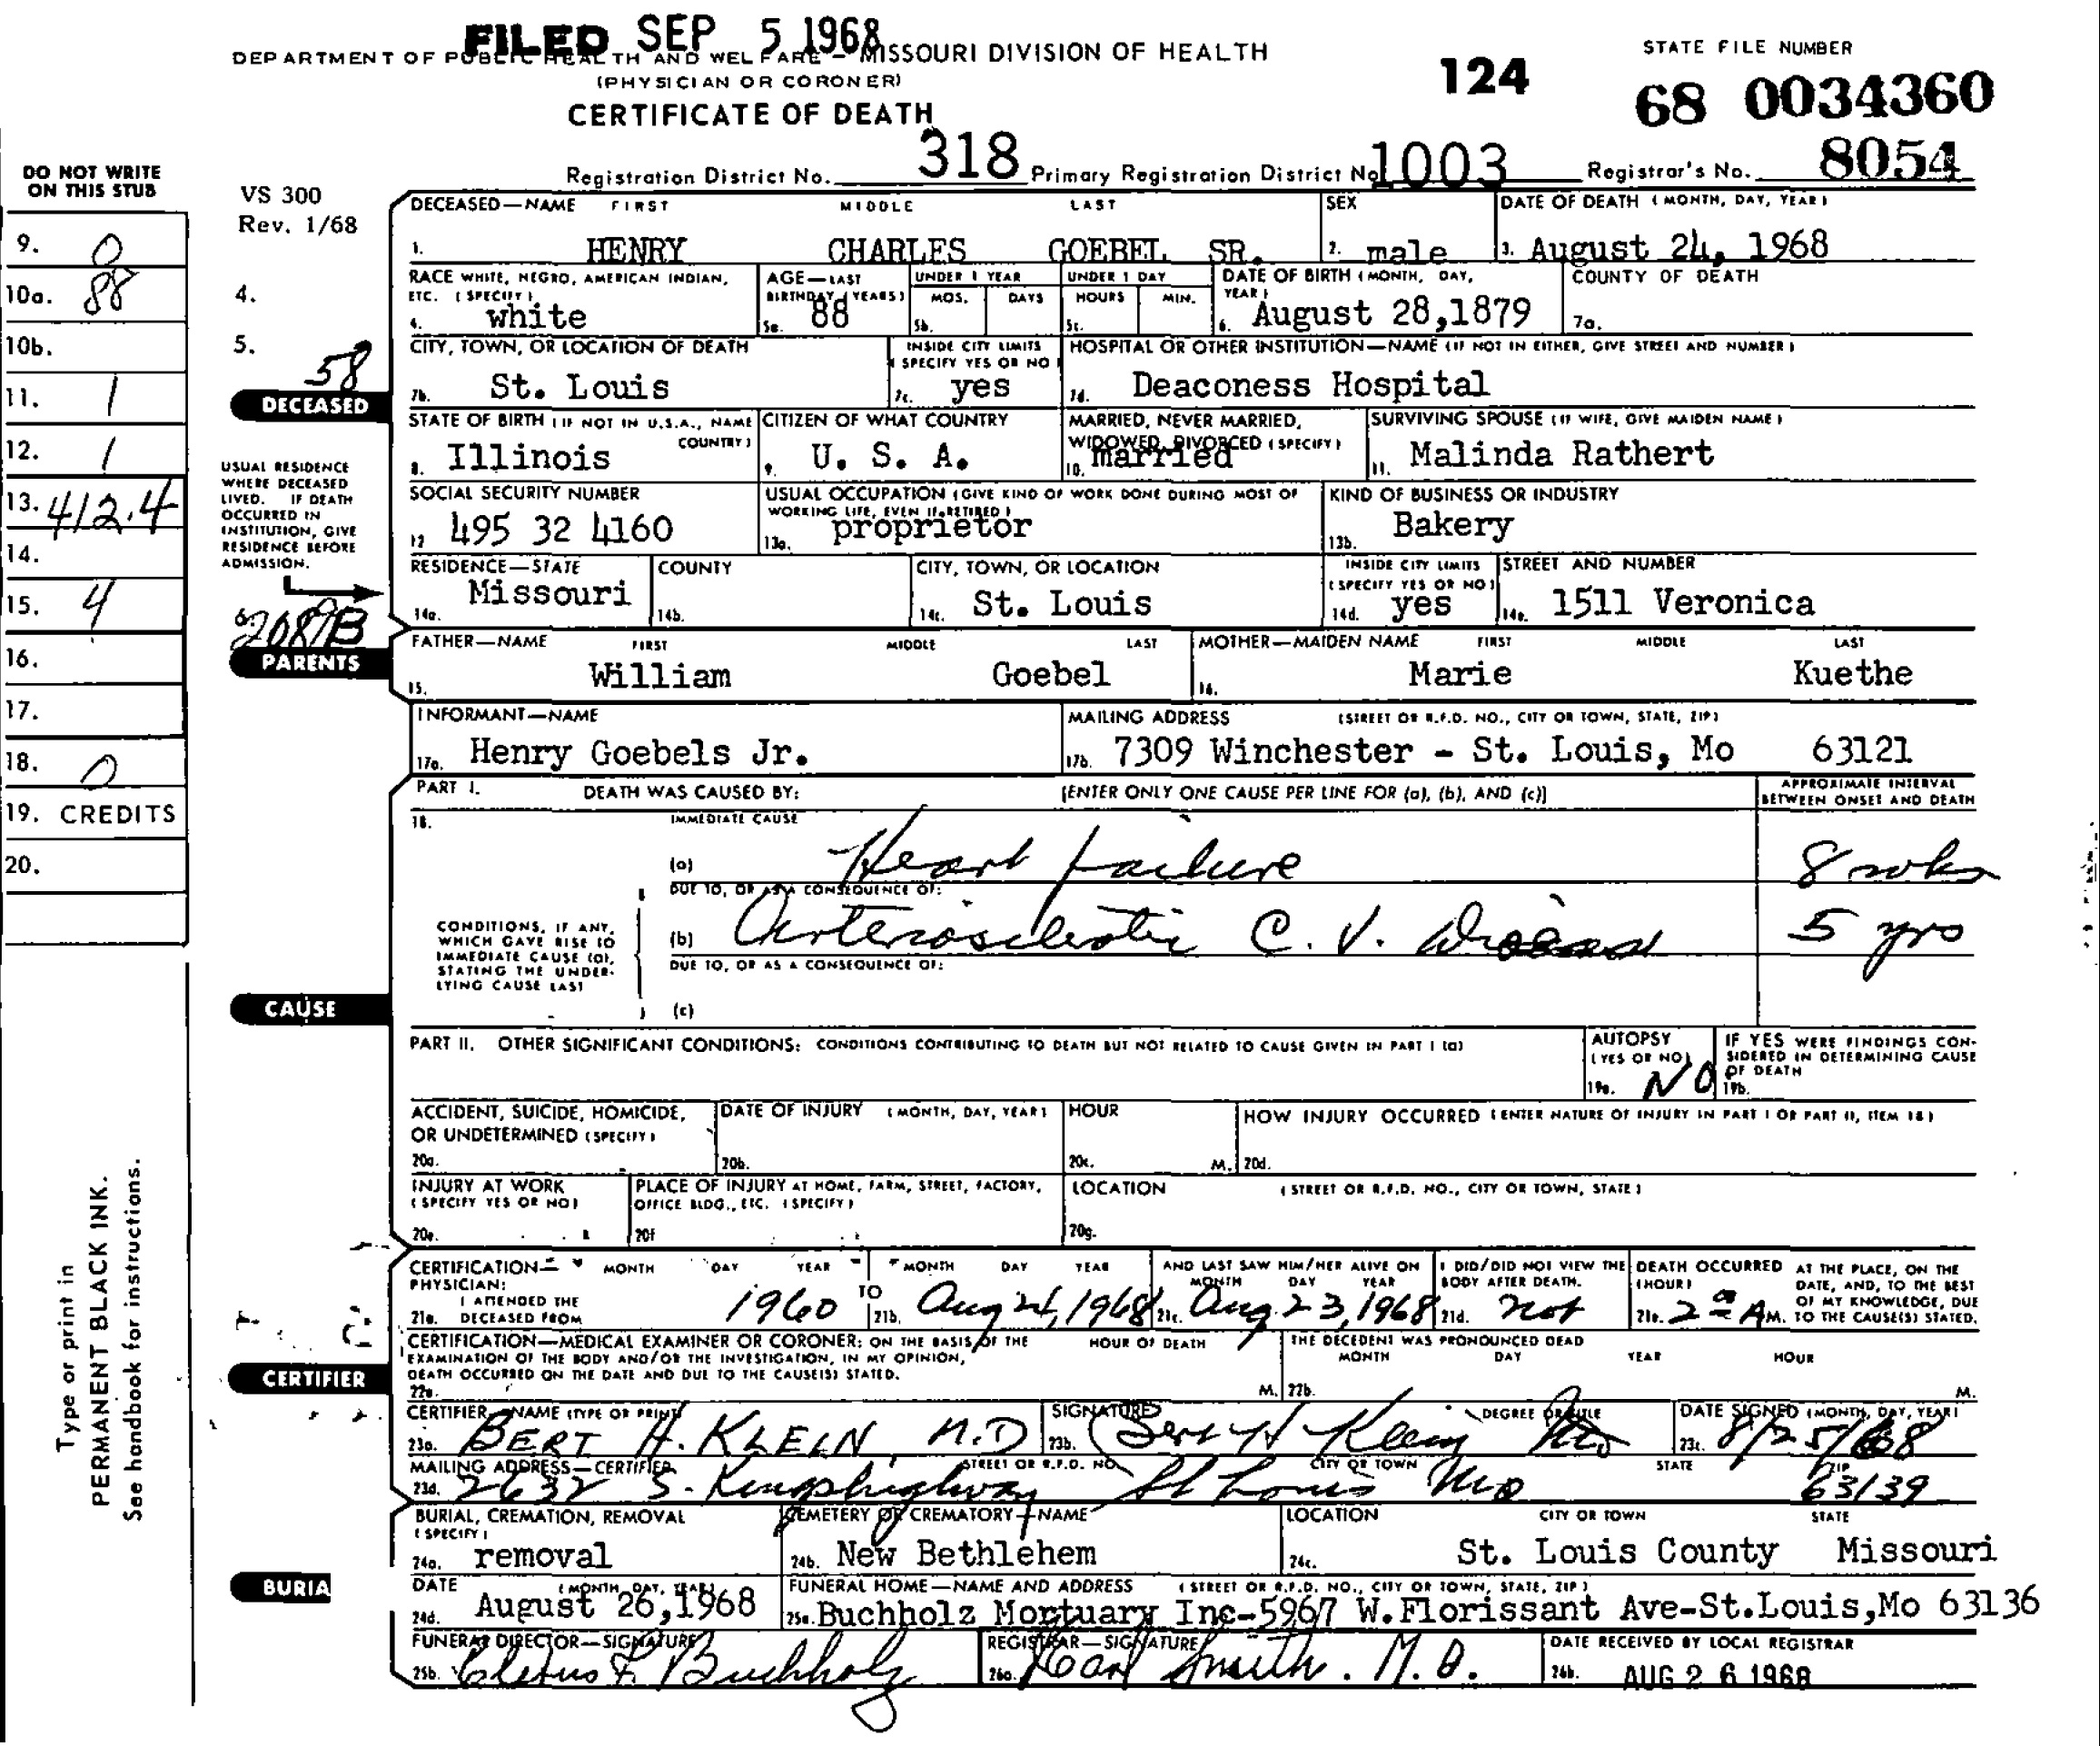 FILED SEP 5 1968
DEPARTMENT OF PUBLIC HEALTH AND WELFARE – MISSOURI DIVISION OF HEALTH
(PHYSICIAN OR CORONER)
CERTIFICATE OF DEATH
124
STATE FILE NUMBER
68 0034360
Registration District No. 318 Primary Registration District No 1003 Registrar's No. 8054
DO NOT WRITE
ON THIS STUB
9. 0
10a. 88
10b.
11. 1
12. 1
13. 412.4
14.
15. 4
16.
17.
18. 0
19. CREDITS
20.
Type or print in
PERMANENT BLACK INK.
See handbook for instructions.
VS 300
Rev. 1/68
4.
5.
58
DECEASED
USUAL RESIDENCE
WHERE DECEASED
LIVED. IF DEATH
OCCURRED IN
INSTITUTION, GIVE
RESIDENCE BEFORE
ADMISSION.
PARENTS
CAUSE
CERTIFIER
BURIA
DECEASED—NAME FIRST MIDDLE LAST
1. HENRY CHARLES GOEBEL SR.
SEX
2. male
DATE OF DEATH (MONTH, DAY, YEAR)
3. August 24, 1968
RACE WHITE, NEGRO, AMERICAN INDIAN,
ETC. (SPECIFY)
4. white
AGE—LAST
BIRTHDAY (YEARS)
5a. 88
UNDER 1 YEAR
MOS. DAYS
5b.
UNDER 1 DAY
HOURS MIN.
5c.
DATE OF BIRTH (MONTH, DAY,
YEAR)
6. August 28,1879
COUNTY OF DEATH
7a.
CITY, TOWN, OR LOCATION OF DEATH
7b. St. Louis
INSIDE CITY LIMITS
(SPECIFY YES OR NO)
7c. yes
HOSPITAL OR OTHER INSTITUTION—NAME (IF NOT IN EITHER, GIVE STREET AND NUMBER)
7d. Deaconess Hospital
STATE OF BIRTH (IF NOT IN U.S.A., NAME
COUNTRY)
8. Illinois
CITIZEN OF WHAT COUNTRY
9. U. S. A.
MARRIED, NEVER MARRIED,
WIDOWED, DIVORCED (SPECIFY)
10. married
SURVIVING SPOUSE (IF WIFE, GIVE MAIDEN NAME)
11. Malinda Rathert
SOCIAL SECURITY NUMBER
12 495 32 4160
USUAL OCCUPATION (GIVE KIND OF WORK DONE DURING MOST OF
WORKING LIFE, EVEN IF RETIRED)
13a. proprietor
KIND OF BUSINESS OR INDUSTRY
13b. Bakery
RESIDENCE—STATE
14a. Missouri
COUNTY
14b.
CITY, TOWN, OR LOCATION
14c. St. Louis
INSIDE CITY LIMITS
(SPECIFY YES OR NO)
14d. yes
STREET AND NUMBER
14e. 1511 Veronica
FATHER—NAME FIRST MIDDLE LAST
15. William Goebel
MOTHER—MAIDEN NAME FIRST MIDDLE LAST
16. Marie Kuethe
INFORMANT—NAME
17a. Henry Goebels Jr.
MAILING ADDRESS (STREET OR R.F.D. NO., CITY OR TOWN, STATE, ZIP)
17b. 7309 Winchester - St. Louis, Mo 63121
PART I. DEATH WAS CAUSED BY: [ENTER ONLY ONE CAUSE PER LINE FOR (a), (b), AND (c)]
APPROXIMATE INTERVAL
BETWEEN ONSET AND DEATH
18. IMMEDIATE CAUSE
(a) Heart failure 8 wks
DUE TO, OR AS A CONSEQUENCE OF:
(b) Arteriosclerotic C. V. Disease 5 yrs
DUE TO, OR AS A CONSEQUENCE OF:
(c)
CONDITIONS, IF ANY,
WHICH GAVE RISE TO
IMMEDIATE CAUSE (a),
STATING THE UNDER-
LYING CAUSE LAST
PART II. OTHER SIGNIFICANT CONDITIONS: CONDITIONS CONTRIBUTING TO DEATH BUT NOT RELATED TO CAUSE GIVEN IN PART I (a)
AUTOPSY
(YES OR NO)
19a. NO
IF YES WERE FINDINGS CON-
SIDERED IN DETERMINING CAUSE
OF DEATH
19b.
ACCIDENT, SUICIDE, HOMICIDE,
OR UNDETERMINED (SPECIFY)
20a.
DATE OF INJURY (MONTH, DAY, YEAR)
20b.
HOUR
20c. M.
HOW INJURY OCCURRED (ENTER NATURE OF INJURY IN PART I OR PART II, ITEM 18)
20d.
INJURY AT WORK
(SPECIFY YES OR NO)
20e.
PLACE OF INJURY AT HOME, FARM, STREET, FACTORY,
OFFICE BLDG., ETC. (SPECIFY)
20f
LOCATION (STREET OR R.F.D. NO., CITY OR TOWN, STATE)
20g.
CERTIFICATION— MONTH DAY YEAR
PHYSICIAN:
I ATTENDED THE
21a. DECEASED FROM 1960
TO
MONTH DAY YEAR
21b. Aug 24, 1968
AND LAST SAW HIM/HER ALIVE ON
MONTH DAY YEAR
21c. Aug 23, 1968
I DID/DID NOT VIEW THE
BODY AFTER DEATH.
21d. not
DEATH OCCURRED
(HOUR)
21e. 2 AM.
AT THE PLACE, ON THE
DATE, AND, TO THE BEST
OF MY KNOWLEDGE, DUE
TO THE CAUSE(S) STATED.
CERTIFICATION—MEDICAL EXAMINER OR CORONER: ON THE BASIS OF THE
EXAMINATION OF THE BODY AND/OR THE INVESTIGATION, IN MY OPINION,
DEATH OCCURRED ON THE DATE AND DUE TO THE CAUSE(S) STATED.
22a.
HOUR OF DEATH
M.
THE DECEDENT WAS PRONOUNCED DEAD
MONTH DAY YEAR HOUR
22b. M.
CERTIFIER—NAME (TYPE OR PRINT)
23a. BERT H. KLEIN, M.D
SIGNATURE DEGREE OR TITLE
23b. Bert H Klein MD
DATE SIGNED (MONTH, DAY, YEAR)
23c. 8/25/68
MAILING ADDRESS—CERTIFIER STREET OR R.F.D. NO. CITY OR TOWN STATE ZIP
23d. 2632 S. Kingshighway St Louis Mo 63139
BURIAL, CREMATION, REMOVAL
(SPECIFY)
24a. removal
CEMETERY OR CREMATORY—NAME
24b. New Bethlehem
LOCATION CITY OR TOWN STATE
24c. St. Louis County Missouri
DATE (MONTH, DAY, YEAR)
24d. August 26,1968
FUNERAL HOME—NAME AND ADDRESS (STREET OR R.F.D. NO., CITY OR TOWN, STATE, ZIP)
25a. Buchholz Mortuary Inc-5967 W.Florissant Ave-St.Louis,Mo 63136
FUNERAL DIRECTOR—SIGNATURE
25b. Cletus F Buchholz
REGISTRAR—SIGNATURE
26a. Karl Smith. M.D.
DATE RECEIVED BY LOCAL REGISTRAR
26b. AUG 26 1968